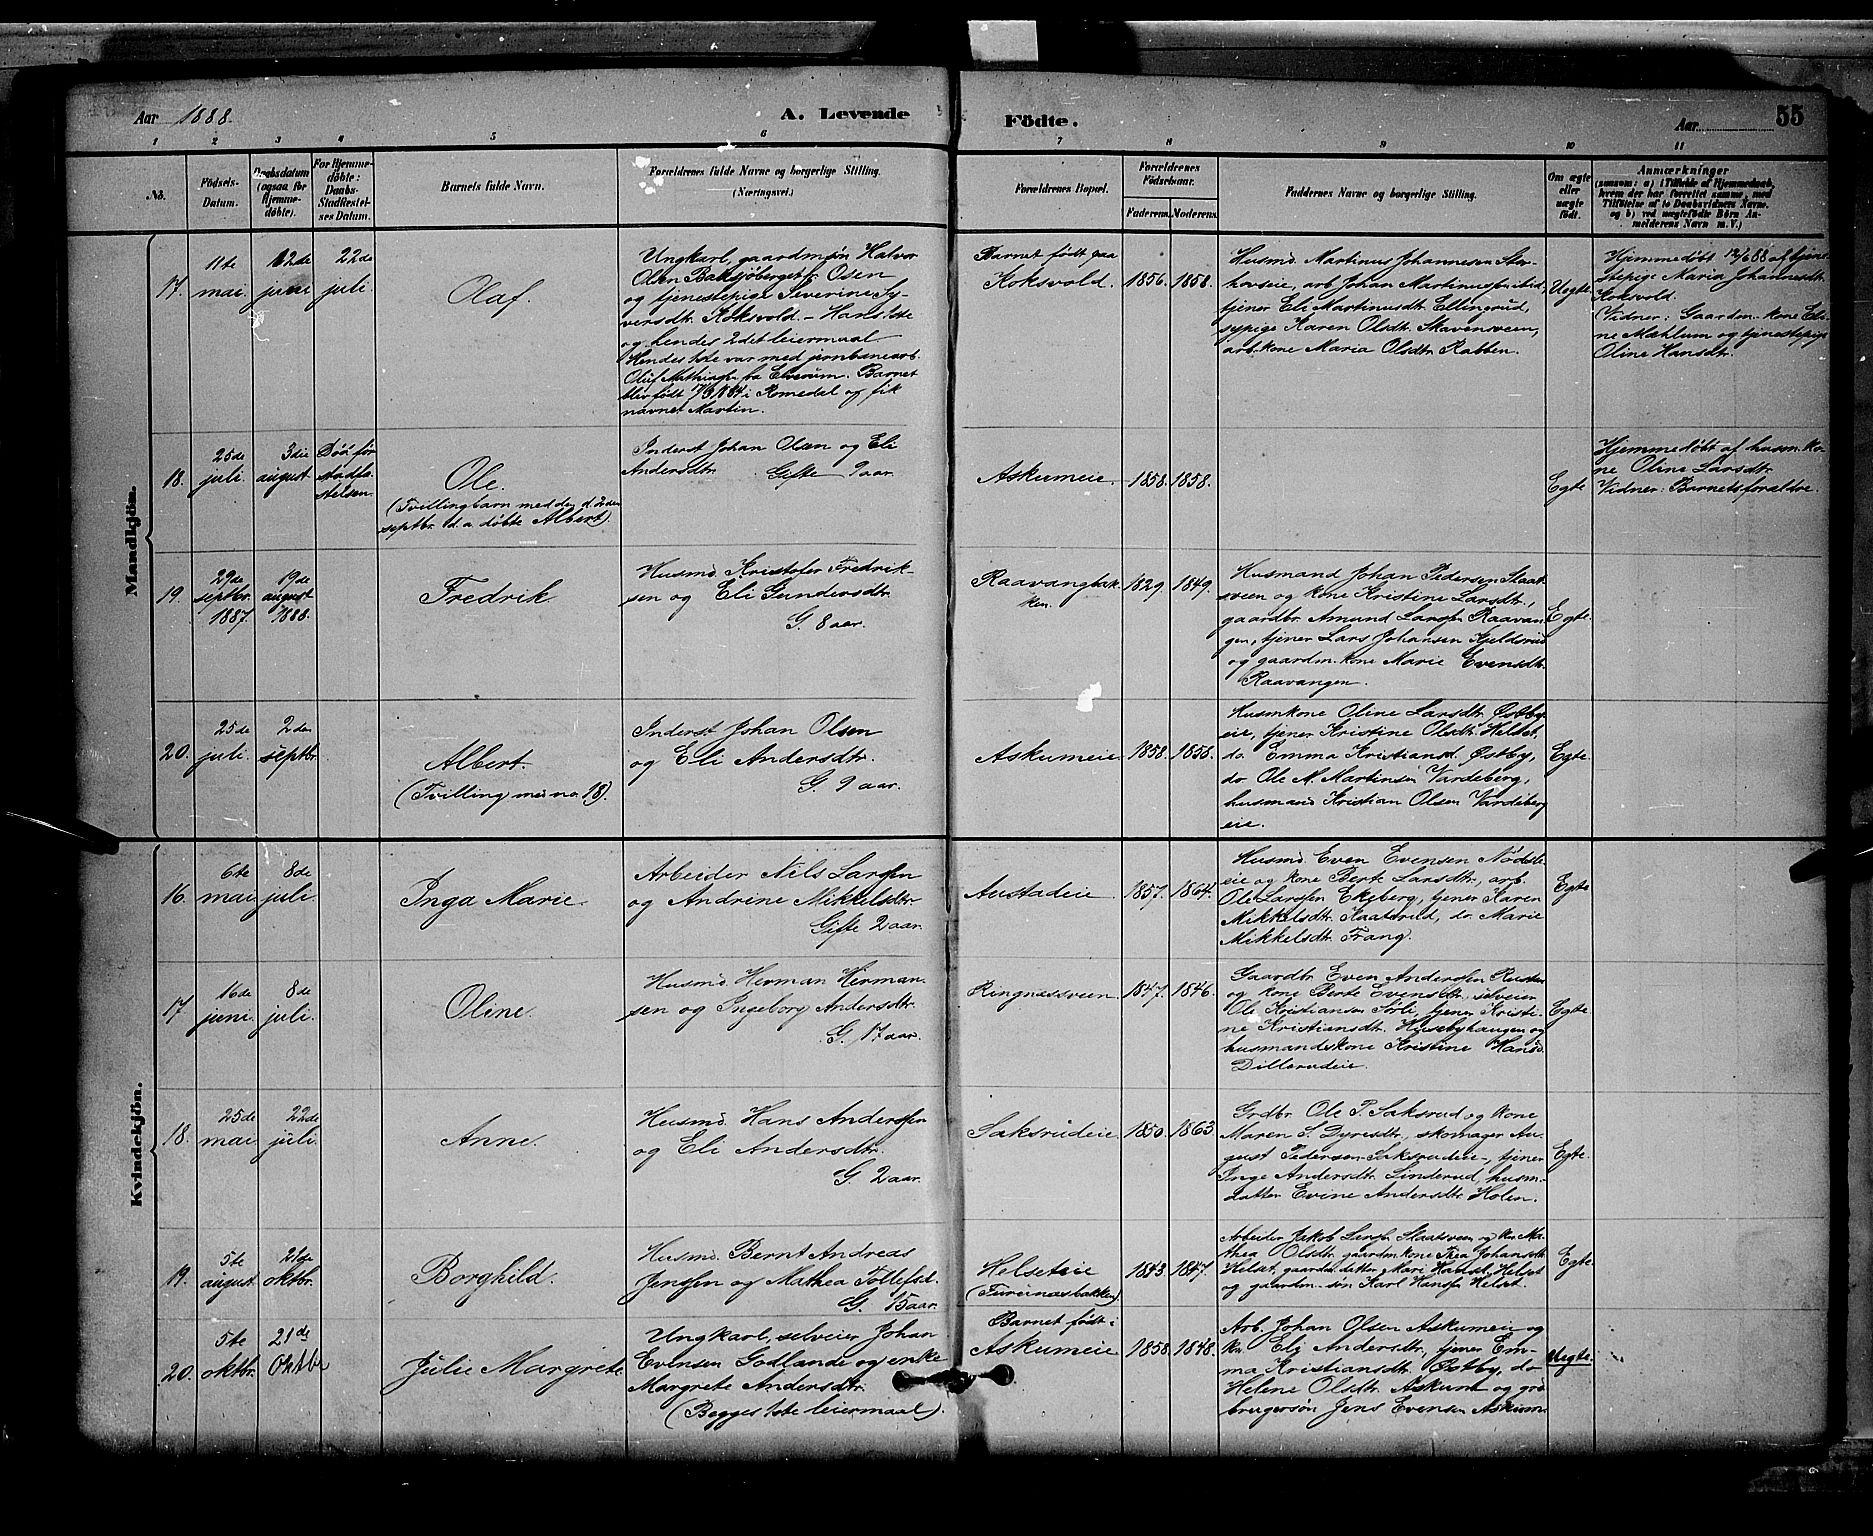 Aar 1888.
A. Levende
Födte.
Aar
55
1 2 3 4 5 6 7 8 9 10 11
No.
Födsels-
Datum.
Daabsdatum
(ogsaa for
Hjemme-
döbte).
For Hjemme-
döbte:
Daabs-
Stadfæstel-
ses Datum.
Barnets fulde Navn.
Forældrenes fulde Navne og borgerlige Stilling.
(Næringsvei.)
Forældrenes Bopæl.
Forældrenes
Födselsaar.
Faderens. Moderens.
Faddernes Navne og borgerlige Stilling.
Om ægte
eller
uægte
födt.
Anmærkninger
(saasom: a) i Tilfælde af Hjemmedaab,
hvem der har forrettet samme, med
Tilföielse af to Daabsvidners Navne,
og b) ved uægtefödte Börn An-
melderens Navn m. V.)
Mandkjön.
17.
11te
mai.
12de
juni
22de
juli
Olaf.
Ungkarl, gaardmsøn Halvor
Olsen Baksjøberget fr. Osen
og tjenestepige Severine Sy-
versdtr. Koksvold. – Hans 1ste
og hendes 2det leiermaal
Hendes 1ste var med jernbanearb.
Oluf Mathiasen fra Elverum. Barnet
blev født 17/3 1884 i Romedal og fik
navnet Martin.
Barnet født paa
Koksvold.
1856. 1858.
Husmd. Martinus Johannesen Sta-
arb. Johan Martinussen ibid,
tjener Eli Martinusdtr. Ellingrud,
sypige Karen Olsdtr. Stavensveen,
arb.kone Maria Olsdtr. Rabben.
Uegte
Hjemmedøbt 12/6 88 af tjene-
stepige Maria Johannesdtr.
Koksvold.
(Vidner: Gaardm. kone Eli-
ne Mahlum og tjenestepige
Oline Hansdtr.
18.
25de
juli.
3die
august
Død før
stadfæ-
stelsen.
Ole.
(Tvillingbarn med den d. 2den
septbr. d.a. døbte Albert)
Inderst Johan Olsen og Eli
Andersdtr.
Gifte 9 aar.
Askumeie.
1858. 1858.
Egte
Hjemmedøbt af husm.ko-
ne Oline Larsdtr.
Vidner: Barnets forældre.
19.
29de
septbr.
1887.
19de
august
1888.
Fredrik
Husmd. Kristofer Fredrik-
sen og Eli Gundersdtr.
G. 8 aar.
Raavangbak-
ken.
1829. 1849.
Husmand Johan Pedersen Staat-
sveen og kone Kristine Larsdtr.,
gaardbr. Amund Larsen Raavan-
gen, tjener Lars Johansen Kjeldsrud
og gaardm. kone Marie Evensdtr.
Raavangen.
Egte.
20.
25de
juli.
2den
septbr.
Albert.
(Tvilling med no. 18).
Inderst Johan Olsen
og Eli Andersdtr.
G. 9 aar.
Askumeie
1858. 1858.
Husmkone Oline Larsdtr. Østby-
eie, tjener Kristine Olsdtr. Helset,
do. Emma Kristiansd. Østby,
do Ole M. Martinsen Vardeberg,
husmand Kristian Olsen Vardeberg-
eie.
Egte.
Kvindekjön.
16
6te
mai
8de
juli.
Inga Marie.
Arbeider Nils Larsen
og Andrine Mikkelsdtr.
Gifte 2 aar.
Austadeie.
1857. 1864.
Husmd. Even Evensen
eie og kone Berte Larsdtr., arb.
Ole Larssen Ekeberg, tjener Karen
Mikkelsdtr. Kaatsrud, do. Marie
Mikkelsdtr. Frang.
Egte
17
16de
juni.
8de
juli.
Oline.
Husmd. Herman Herman-
sen og Ingeborg Andersdtr.
G. 17 aar.
Ringnæsveen.
1847. 1846.
Gaardbr. Even Anderssen
og kone Berte Evensdtr., selveier
Ole Kristiansen Sørli, tjener Kristi-
ne Kristiansdtr. Husebyhaugen og
husmandskone Kristine Hansd.
Dillerudeie.
Egte
18.
25de
mai
22de
juli
Anne.
Husmd. Hans Anderssen
og Eli Andersdtr.
G 2 aar.
Saksrudeie
1850. 1863
Grdbr. Ole P. Saksrud og kone
Maren S. Dyresdtr., skomager Au-
gust Pedersen Saksrudeie, tjener
Inge Andersdtr. Linderud, husm.
datter Evine Andersdtr. Holen.
Egte.
19.
5te
august
21de
oktbr.
Borghild.
Husmd. Bernt Andreas
Jenssen og Mathea Tollefsd.
G. 15 aar.
Helseteie
(Furunæsbakken)
1843. 1847.
Arbeider Jakob Larsen Staatsveen og kone Ma-
thea Olsdtr., gaardm.kone Thea Johansdtr.
Helset, gaardm. datter Mari Hansd. Helset
og gaardm. søn Karl Hansen Helset.
Egte.
20.
5te
oktbr.
21de
Oktbr
Julie Margrete
Ungkarl, selveier Johan
Evensen Godlande og enke
Margrete Andersdtr.
(Begges 1ste leiermaal).
Barnet født i
Askumeie
1858. 1848.
Arb. Johan Olsen Askumeie og
kn. Eli Andersdtr., tjener Em-
ma Kristiansdtr. Østby, do
Helene Olsdtr. Askum og grd-
brugersøn Jens Evensen Askum.
Uegte.